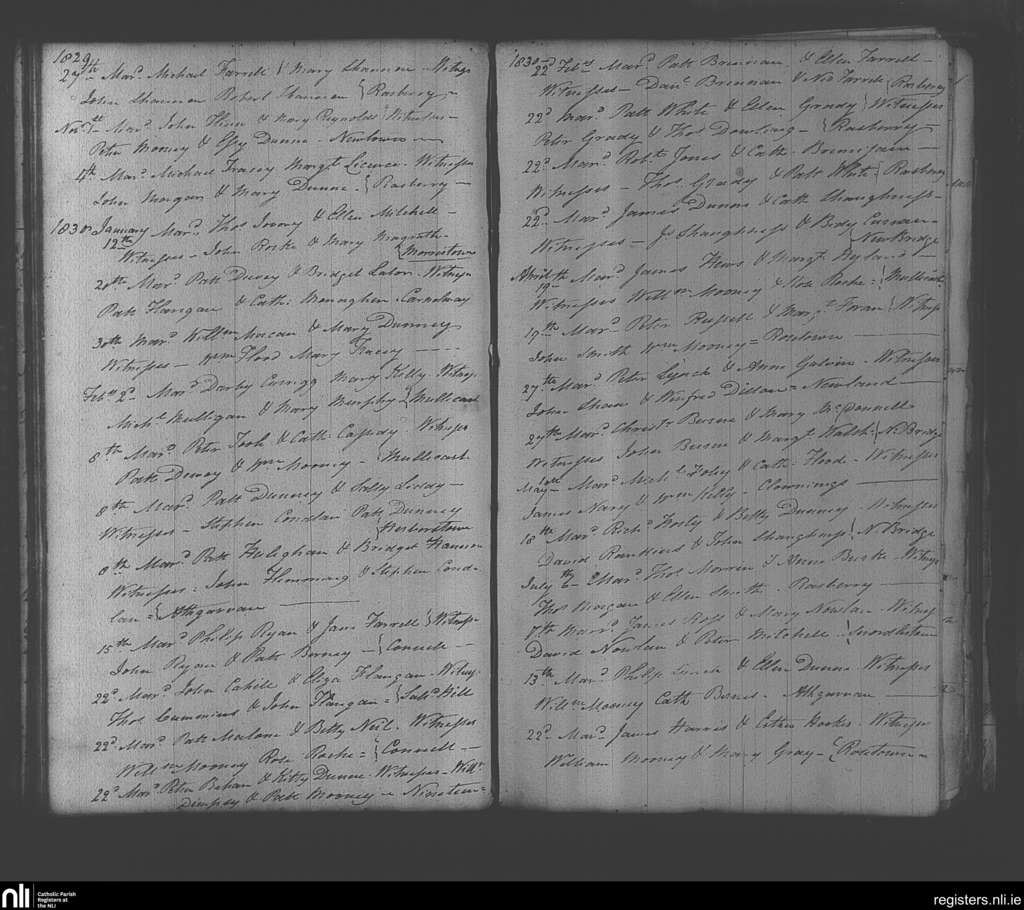 1829
27th Mard Michael Farrell & Mary Shannon - Witnys
John Shannon Robert Hannon { Rosberry -
Novr 1st Mard John Hann & Mary Reynolds Witnesses -
Peter Mooney & Essy Dunne - Newtown -
4th Mard Michael Tracey Margt Witnesses
John Morgan & Mary Dunne { Rosberry -
1830 January Mard Thos & Ellen Mitchell -
12th Witnesses - John Roske & Mary Magrath
{ Morristown
20th Mard Patt Dewey & Bridget Witnys
Patt Flanigan & Cath: Monaghen - Carnelway
30th Mard Willm & Mary Dunney
Witnesses - Wm Flood Mary Tracey -
Feby 2d Mard Darby Mary Kelly - Witnys
Michl Mulligan & Mary Murphy { Mullicast
8th Mard Peter Toole & Cath: Witnesses
Patt Dewey & Wm Mooney - Mullicast
8th Mard Patt Dunney & Sally -
Witnesses - Stephen Conolan Patt Dunney
{ Herberstown
8th Mard Patt & Bridget Hannon
Witnesses - John Flemming & Stephen Cond-
lan = { Athgarvan
15th Mard Philip Ryan & Jane Farrell } Witnesses
John Ryan & Patt Birney - { Connell -
22d Mard John Cahill & Eliza Flanigan - Witnys
Thos Cummins & John Flanigan = { Hill
22d Mard Patt Malone & Betty Neil - Witnesses
Willm Mooney Rose Roche = { Connell -
22d Mard Peter Behan & Kitty Dunne - Witnesses - Willm
Dempsey & Patt Mooney -
1830
22d Feby Mard Patt Brennan & Ellen Farrell -
Witnesses - Danl Brennan & Farrell { Rosberry
22d Mard Patt White & Ellen Grady } Witnesses
Peter Grady & Thos Dowling - { Rosberry -
22d Mard Robt Jones & Cath: -
Witnesses - Thos Grady & Patt White { Rosberry
22d Mard James Dunne & Cath Shaughness -
Witnesses - Js Shaughness & Bidy
{ New Bridge
April 19th Mard James & Margt Hyland -
Witnesses Willm Mooney & Rose Roche = { Mullicast
19th Mard Peter Russell & Margt Foran { Witnesses
John Smith Wm Mooney = Rostown
27th Mard Peter Lynch & Anne Galvin - Witnesses
John Shea & Winfred Dillon = Newland
27th Mard Christr Byrne & Mary McDonnell
Witnesses John Byrne & Margt Walsh { N. Bridge
May 10th Mard Michl Foley & Cath: Flood - Witnesses
James Nary & Wm Kelly - Clownings
18th Mard Richd & Betty Dunney - Witnesses
David Rawkins & John Shaughness { N. Bridge
July 6th Mard Thos Morrin & Anne Burke - Witnys
Thos Morgan & Ellen Smith - Rosberry
7th Mard James Ross & Mary Nowlan - Witnesses
David Nowlan & Peter Mitchell {
13th Mard Philip Lynch & Ellen Dunne - Witnesses
Willm Mooney Cath Byrne - Athgarvan
22d Mard James Harris & Esther - Witnesses
William Mooney & Mary Gray - { Rosetown -
nli
Catholic Parish
Registers at
the NLI
registers.nli.ie